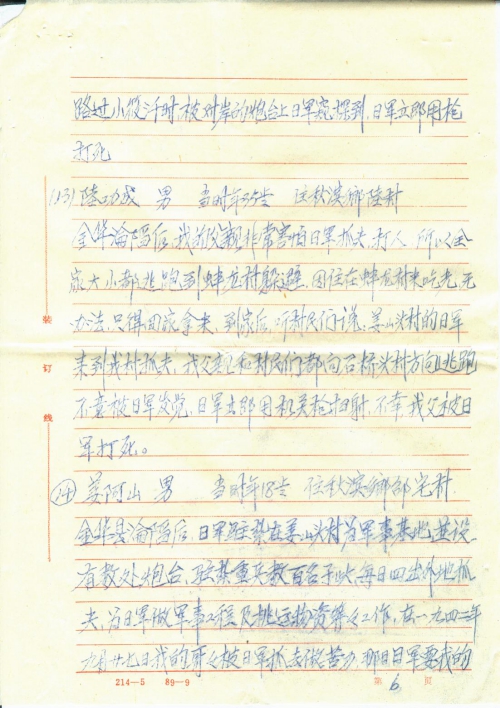 路过小筱汗时,被对岸的炮台上日军窥探到,日军立即用枪
打死
(13)陆功成 男 当时年35岁 住秋滨乡陆村
金华沦陷后,我的父亲非常害怕日军抓夫,打人 所以全
家大小都逃跑到蚌龙村躲避,因住在蚌龙村米吃光,无
办法,只得回家拿米,到家后,听村民们说,姜山头村的日军
来到我村抓夫,我父亲和村民们都向石桥头村方向逃跑
不意被日军发觉,日军立即用机关枪扫射,不幸我父被日
军打死。
14 姜阿山 男 当时年18岁 住秋滨乡邵宅村
金华县沦陷后,日军驻扎在姜山头村为军事基地,其设
有数处炮台,驻扎重兵数百名予以,每日四出外地抓
夫,为日军做军事工程及挑运物资等々工作,在一九四二年
九月廿七日我的哥々被日军抓去做苦力,那日日军要我的
装
订
线
214—5 89—9
第 6 页